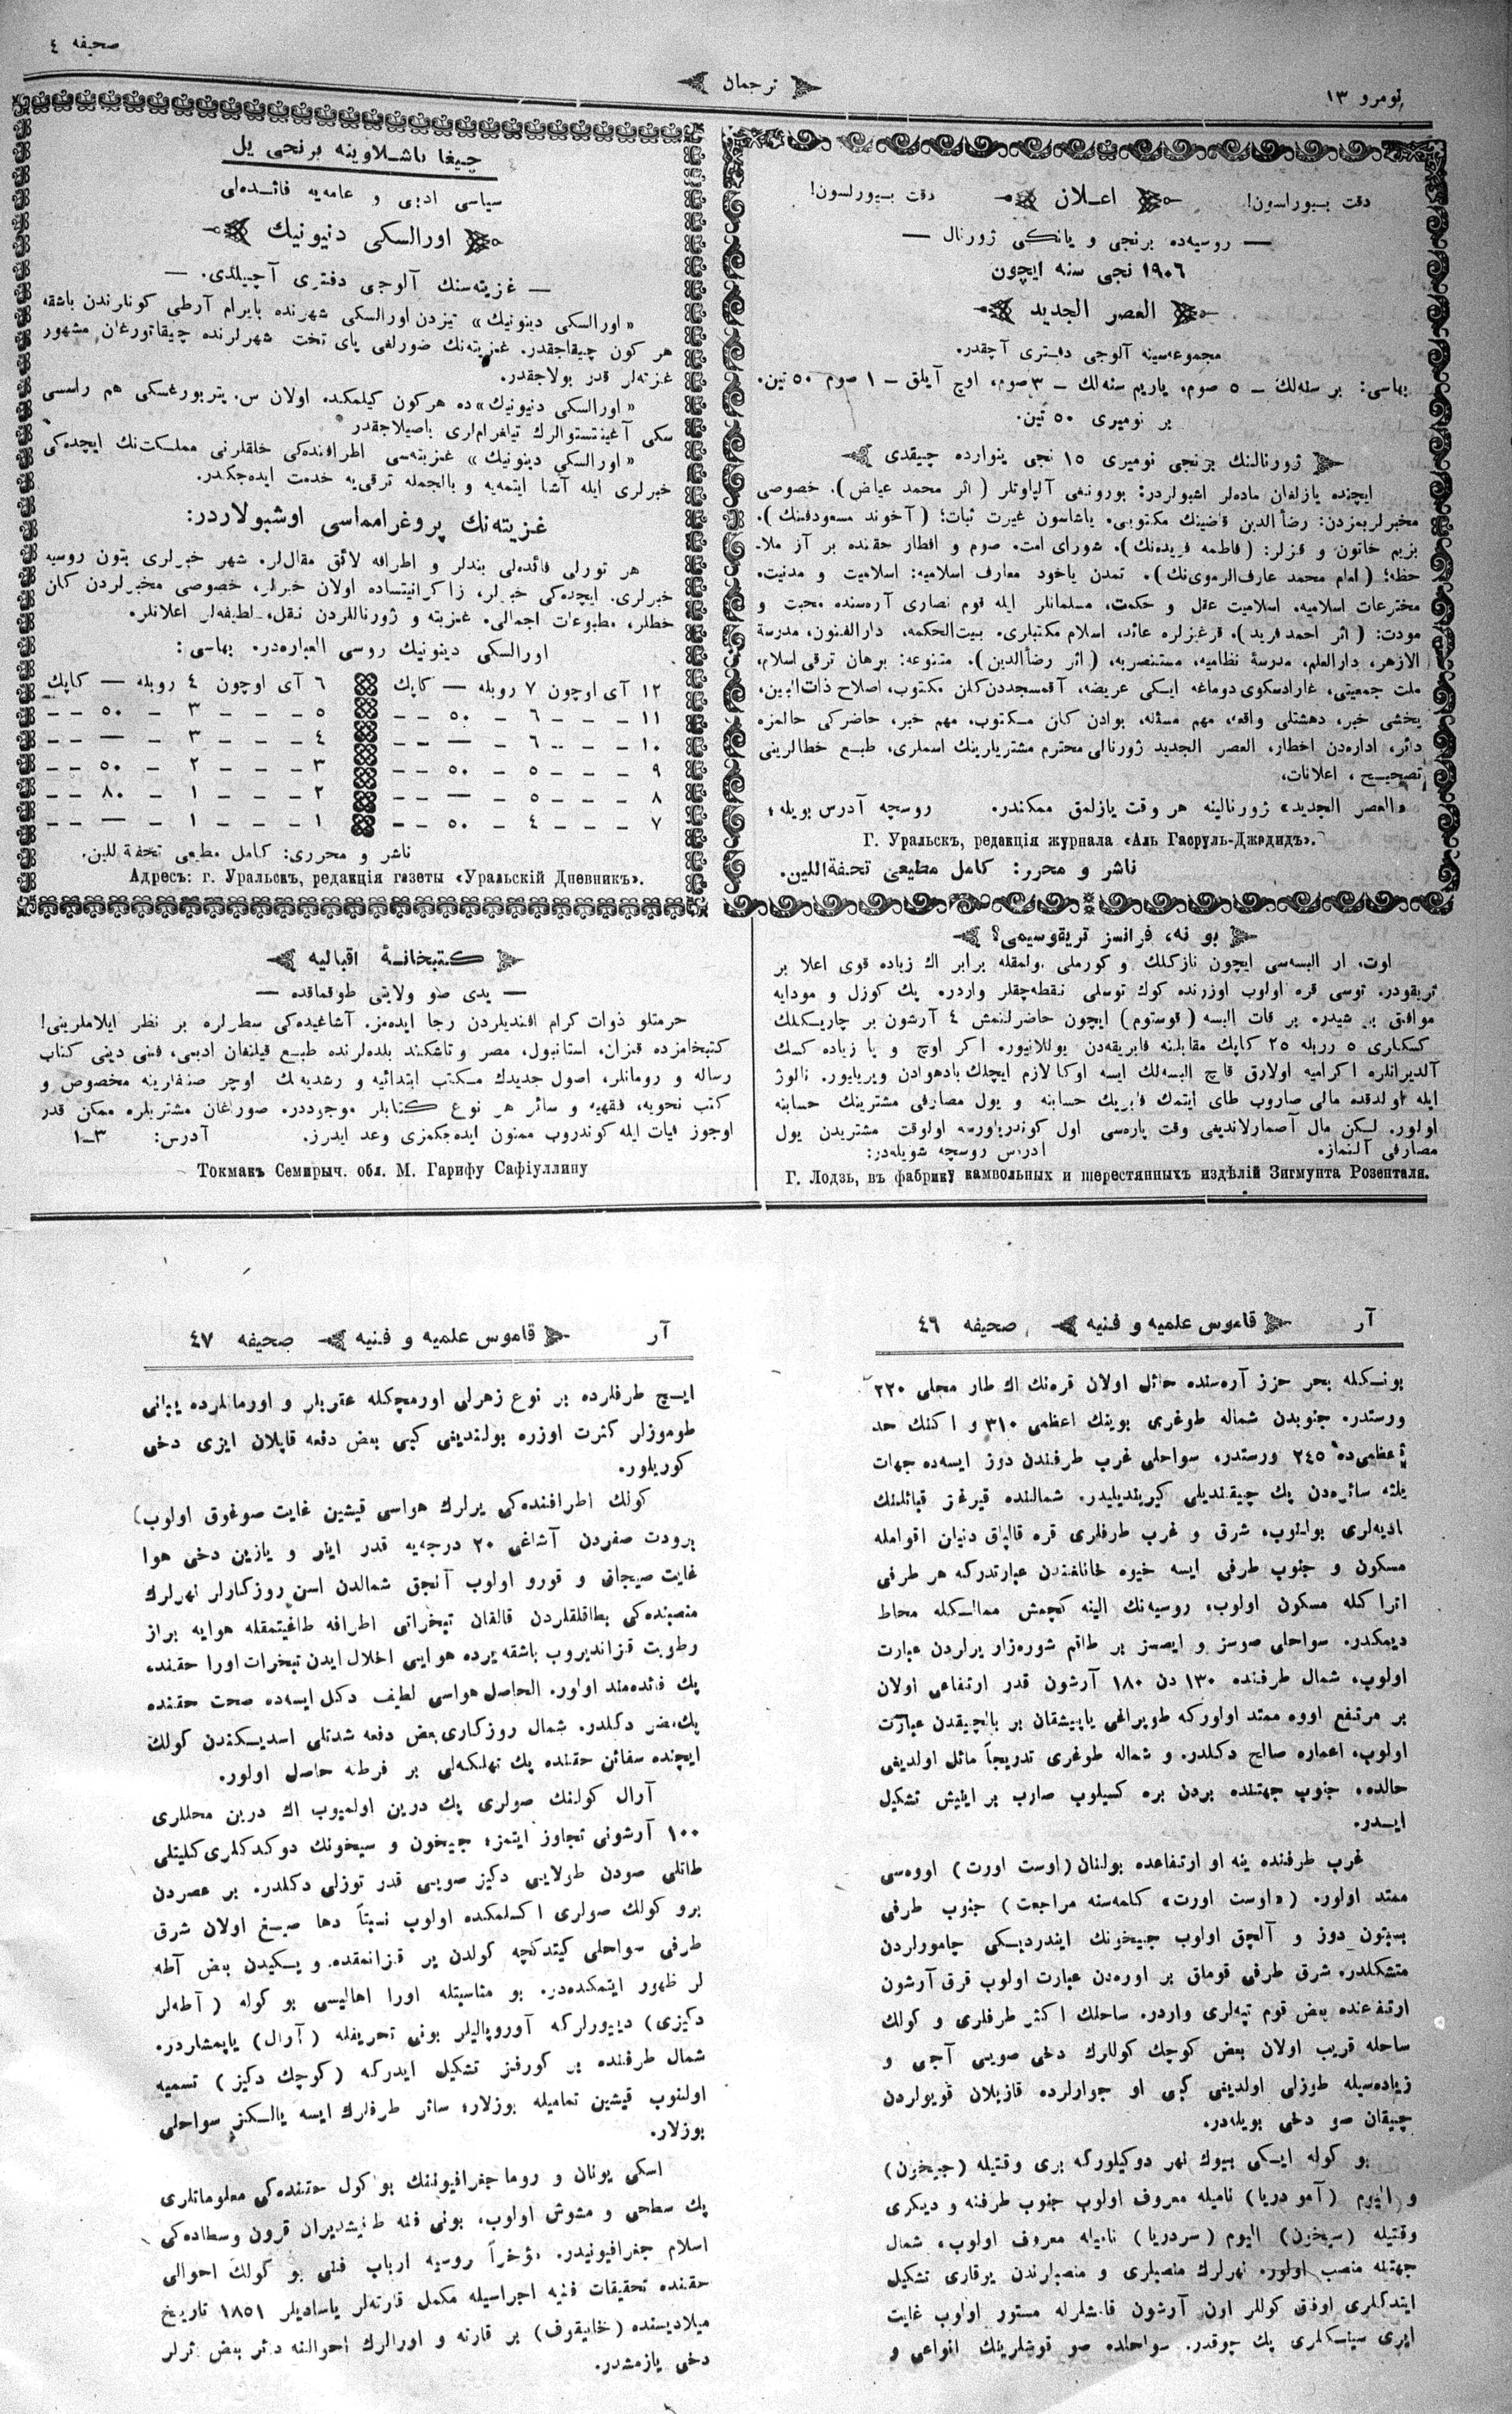 نومرو ١٣
ترجمان
صحیفه ٤
دقت بیورلسون!
اعلان
دقت بیورلسون!
— روسیه‌ده برنجی و یانکی ژورنال —
١٩٠٦ نجی سنه ایچون
العصر الجدید
مجموعه‌سینه آلوجی دفتری آچقدر.
بهاسی: بر سنه‌لك – ٥ صوم، یاریم سنه‌لك – ٣ صوم، اوچ آیلق – ١ صوم ٥٠ تین.
بر نومیری ٥٠ تین.
ژورنالنك برنجی نومیری ١٥ نجی ینوارده چیقدی
ایچنده یازلغان ماده‌لر اشبولردر: بورونغی آلپاوتلر (اثر محمد عیاض). خصوصی
مخبرلریمزدن: رضأالدین قاضینك مکتوبی. یاشاسون غیرت ثبات؛ (آخوند مسعودفنك).
بزیم خاتون و قزلر: (فاطمه فریده‌نك). شورای امت. صوم و افطار حقنده بر آز ملا-
حظه؛ (امام محمد عارف الرموی‌نك). تمدن یاخود معارف اسلامیه: اسلامیت و مدنیت.
مخترعات اسلامیه. اسلامیت عقل و حکمت، مسلمانلر ایله قوم نصاری آره‌سنده محبت و
مودت: (اثر احمد فرید). قرغزلره عائد، اسلام مکتبلری. بیت‌الحکمه، دارالفنون، مدرسهٔ
الازهر، دارالعلم، مدرسهٔ نظامیه، مستنصریه، (اثر رضأالدین). متنوعه: برهان ترقی اسلام،
ملت جمعیتی، غارادسکوی دوماغه ایکی عریضه، آقمسجددن کلن مکتوب، اصلاح ذات‌البین،
یخشی خبر، دهشتلی واقعه، مهم مسئله، بوادن کلن مکتوب، مهم خبر، حاضرکی حالمزه
دائر، اداره‌دن اخطار، العصر الجدید ژورنالی محترم مشتریلرینك اسملری، طبع خطالرینی
تصحیح، اعلانات.
«العصر الجدید» ژورنالینه هر وقت یازلمق ممکندر. روسچه آدرس بویله؛
Г. Уральскъ, редакція журнала «Аль Гасруль-Джадидъ».
ناشر و محرر: کامل مطیعی تحفةاللین.
چیغا باشلاوینه برنجی یل
سیاسی ادبی و عامه‌یه فائده‌لی
اورالسکی دنیونیك
— غزیته‌سنك آلوجی دفتری آچیلدی. —
«اورالسکی دینونیك» تیزدن اورالسکی شهرنده بایرام آرطی کونلرندن باشقه
هر کون چیقاجقدر. غزیته‌نك ضورلغی پای تخت شهرلرنده چیقاتورغان مشهور
غزته‌لر قدر بولاجقدر.
«اورالسکی دنیونیك» ده هرکون کیلمکده اولان س. پتربورغسکی هم راسسی
سکی آغینتستوالرك تیلغرام‌لری باصیلاجقدر
«اورالسکی دینونیك» غزیته‌سی اطرافنده‌کی خلقلرنی مملکت‌نك ایچده‌کی
خبرلری ایله آشنا ایتمه‌یه و بالجمله ترقی‌یه خدمت ایده‌جکدر.
غزیته‌نك پروغرامماسی اوشبولاردر:
هر تورلی فائده‌لی بندلر و اطرافه لائق مقال‌لر. شهر خبرلری بتون روسیه
خبرلری. ایچده‌کی خبرلر، زاکرانیتساده اولان خبرلر، خصوصی مخبرلردن کلن
خطلر، مطبوعات اجمالی. غزیته و ژورناللردن نقل، لطیفه‌لر اعلانلر.
اورالسکی دینونیك روسی العباره‌در. بهاسی:
١٢ آی اوچون ٧ روبله — کاپك
٦ آی اوچون ٤ روبله — کاپك
١١ – – – ٦ – ٥٠ – –
٥ – – – ٣ – ٥٠ – –
١٠ – – – ٦ – — – –
٤ – – – ٣ – — – –
٩ – – – ٥ – ٥٠ – –
٣ – – – ٢ – ٥٠ – –
٨ – – – ٥ – — – –
٢ – – – ١ – ٨٠ – –
٧ – – – ٤ – ٥٠ – –
١ – – – ١ – — – –
ناشر و محرری: کامل مطیعی تحفة‌اللین.
Адресъ: г. Уральскъ, редакція газеты «Уральскій Дневникъ».
بو نه، فرانسز تریقوسیمی؟
اوت، ار البسه‌سی ایچون نازکلك و کورملی اولمقله برابر اك زیاده قوی اعلا بر
تریقودر. توسی قره اولوب اوزرنده کوك توسلی نقطه‌چقلر واردر. پك کوزل و مودایه
موافق بر شیدر. بر قات البسه (قوستوم) ایچون حاضرلنمش ٤ آرشون بر چاریکلك
کسکاری ٥ روبله ٢٥ کاپك مقابلنه فابریقه‌دن یوللانیور. اکر اوچ و یا زیاده کسك
آلدیرانلره اکرامیه اولارق قاچ البسه‌لك ایسه اوکا لازم ایچلك بادهوادن ویریلیور. نالوژ
ایله اولدقده مالی صاروب طای ایتمك فابریك حسابنه و یول مصارفی مشترینك حسابنه
اولور. لیکن مال آصمارلاندیغی وقت پاره‌سی اول کوندریلورسه اولوقت مشتریدن یول
مصارفی آلنماز. ادرس روسچه شویله‌در:
Г. Лодзь, въ фабрику камвольныхъ и шерстяныхъ издѣлій Зигмунта Розенталя.
کتبخانهٔ اقبالیه
— یدی صو ولایتی طوقماقده —
حرمتلو ذوات کرام افندیلردن رجا ایده‌مز. آشاغیده‌کی سطرلره بر نظر ایلاملرینی!
کتبخامزده قزان، استانبول، مصر و تاشکند بلده‌لرنده طبع قیلنغان ادبی، فنی دینی کتاب
رساله و رومانلر، اصول جدیدك مکتب ابتدائیه و رشدیه‌نك اوچر صنفلرینه مخصوص و
کتب نحویه، فقهیه و سائر هر نوع کتابلر موجوددر. صوراغان مشتریلره ممکن قدر
اوجوز فیات ایله کوندروب ممنون ایده‌جکمزی وعد ایدرز. آدرس: ٣–١
Токмакъ Семирыч. обл. М. Гарифу Сафіуллину
آر
قاموس علمیه و فنیه
صحیفه ٤٦
بونکله بحر حزز آره‌سنده حائل اولان قره‌نك اك طار محلی ٢٢٠
ورستدر. جنوبدن شماله طوغری بوینك اعظمی ٣١٠ و اکنك حد
اعظمی‌ده ٢٤٥ ورستدر. سواحلی غرب طرفندن دوز ایسه‌ده جهات
ثلثه سائره‌دن پك چیقندیلی کیرندیلیدر. شمالنده قیرغز قبائلنك
بادیه‌لری بولنوب، شرق و غرب طرفلری قره قالپاق دنیان اقوامله
مسکون و جنوب طرفی ایسه خیوه خانلغندن عبارتدرکه هر طرفی
اتراکله مسکون اولوب، روسیه‌نك الینه کچمش ممالکله محاط
دیمکدر. سواحلی صوسز و ایصسز بر طاقم شوره‌زار یرلردن عبارت
اولوب، شمال طرفنده ١٣٠ دن ١٨٠ آرشون قدر ارتفاعی اولان
بر مرتفع اووه ممتد اولورکه طوپراغی یاپیشقان بر بالچیقدن عبارت
اولوب، اعماره صالح دکلدر. و شماله طوغری تدریجاً مائل اولدیغی
حالده، جنوب جهتنده بردن بره کسیلوب صارب بر اینیش تشکیل
ایدر.
غرب طرفنده ینه او ارتفاعده بولنان (اوست اورت) اووه‌سی
ممتد اولور. («اوست اورت» کلمه‌سنه مراجعت) جنوب طرفی
بستون دوز و آلچق اولوب جیحونك ایندردیکی چامورلردن
متشکلدر. شرق طرفی قوملق بر اوره‌دن عبارت اولوب قرق آرشون
ارتفاعنده بعض قوم تپه‌لری واردر. ساحلك اکثر طرفلری و کولك
ساحله قریب اولان بعض کوچك کوللرك دخی صویی آجی و
زیاده‌سیله طوزلی اولدیغی کبی او جوارلرده قازیلان قویولردن
چیقان صو دخی بویله‌در.
بو کوله ایکی بیوك نهر دوکیلورکه بری وقتیله (جیحون)
و الیوم (آمو دریا) نامیله معروف اولوب جنوب طرفنه و دیکری
وقتیله (سیحون) الیوم (سردریا) نامیله معروف اولوب، شمال
جهتنه منصب اولور. نهرلرك منصبلری و منصبلرندن یوقاری تشکیل
ایتدکلری اوفق کوللر اون آرشون قامشلرله مستور اولوب غایت
ایری سیاسکلری پك چوقدر. سواحلده صو قوشلرینك انواعی و
آر
قاموس علمیه و فنیه
صحیفه ٤٧
ایچ طرفلرده بر نوع زهرلی اورمچکله عقربلر و اورمانلرده یبانی
طوموزلر کثرت اوزره بولندیغی کبی بعض دفعه قاپلان ایزی دخی
کوریلور.
کولك اطرافنده‌کی یرلرك هواسی قیشین غایت صوغوق اولوب)
برودت صفردن آشاغی ٢٠ درجه‌یه قدر اینر و یازین دخی هوا
غایت صیجاق و قورو اولوب آنجق شمالدن اسن روزکارلر نهرلرك
منصبنده‌کی بطاقلقلردن قالقان تبخراتی اطرافه طاغیتمقله هوایه براز
رطوبت قزاندیروب باشقه یرده هوایی اخلال ایدن تبخرات اورا حقنده
پك فائده‌مند اولور. الحاصل هواسی لطیف دکل ایسه‌ده صحت حقنده
پك مضر دکلدر. شمال روزکاری بعض دفعه شدتلی اسدیکندن کولك
ایچنده سفائن حقنده پك تهلکه‌لی بر فرطنه حاصل اولور.
آرال کولنك صولری پك درین اولمیوب اك درین محللری
١٠٠ آرشونی تجاوز ایتمز؛ جیحون و سیحونك دوکدکلری کلیتلی
طاتلی صودن طولایی دکیز صویی قدر توزلی دکلدر. بر عصردن
برو کولك صولری اکسلمکده اولوب نسبتاً دها صیغ اولان شرق
طرفی سواحلی کیتدکچه کولدن یر قزانمقده و یکیدن بعض آطه
لر ظهور ایتمکده‌در. بو مناسبتله اورا اهالیسی بو کوله (آطه‌لر
دکیزی) دییورلرکه آوروپالیلر بونی تحریفله (آرال) یاپمشلردر.
شمال طرفنده بر کورفز تشکیل ایدرکه (کوچك دکیز) تسمیه
اولنوب قیشین تمامیله بوزلار؛ سائر طرفلرك ایسه یالکز سواحلی
بوزلار.
اسکی یونان و روما جغرافیوننك بو کول حقنده‌کی معلوماتلری
پك سطحی و مشوش اولوب، بونی فنه طانیتدیران قرون وسطاده‌کی
اسلام جغرافیونیدر. مؤخراً روسیه ارباب فنی بو کولك احوالی
حقنده تحقیقات فنیه اجراسیله مکمل قارته‌لر یاسادیلر ١٨٥١ تاریخ
میلادیسنده (خانیقوف) بر قارته و اورالرك احوالنه دائر بعض اثرلر
دخی یازمشدر.